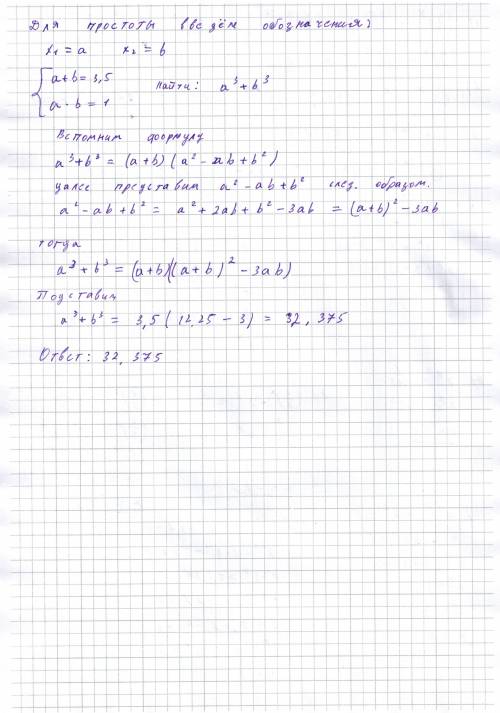 Для простоты введём обозначения:
x₁ = a x₂ = b
a+b = 3,5
a·b = 1
Найти: a³ + b³
Вспомним формулу
a³+b³ = (a+b) (a² - ab + b²)
Далее представим a² - ab + b² след. образом.
a² - ab + b² = a² + 2ab + b² - 3ab = (a+b)² - 3ab
тогда
a³ + b³ = (a+b)((a+b)² - 3ab)
Подставим
a³+b³ = 3,5 (12,25 - 3) = 32,375
Ответ: 32,375